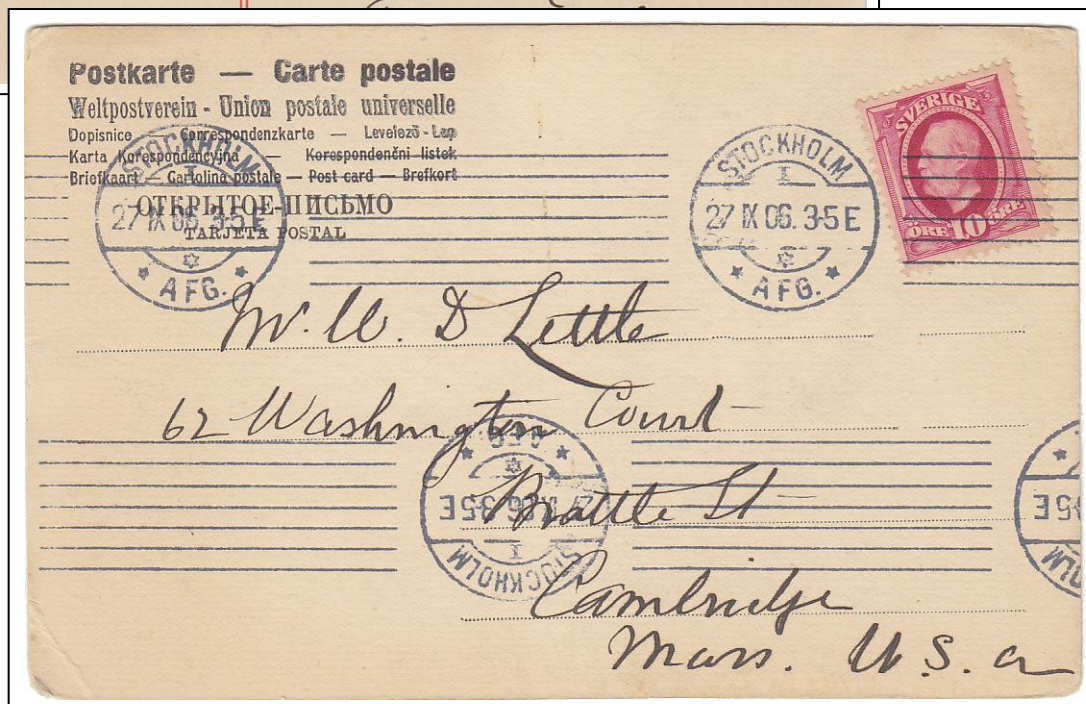 Postkarte — Carte postale
Weltpostverein - Union postale universelle
Dopisnice — Correspondenzkarte — Levelező-Lap
Karta Korespondencyjna — Korespondenční listek
Briefkaart — Cartolina postale — Post card — Brefkort
ОТКРЫТОЕ-ПИСЬМО
TARJETA POSTAL
STOCKHOLM
1
27 IX 06. 3-5 E
AFG.
STOCKHOLM
1
27 IX 06. 3-5 E
AFG.
SVERIGE
ÖRE 10 ÖRE
Mr. W. D Little
62 Washington Court
Brattle St
Cambridge
Mass. U. S. a
AFG.
3-5 E
1
STOCKHOLM
3-5